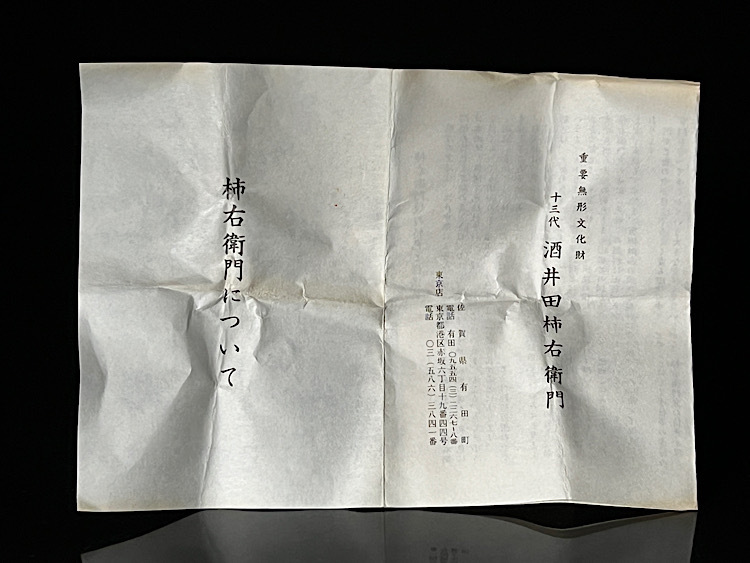 重要無形文化財
十三代 酒井田柿右衛門
佐賀県有田町
電話 有田 〇九五五四(三)二二六七~八番
東京店 東京都港区赤坂六丁目十九番四四号
電話 〇三(五八六)三八四一番
柿右衛門について